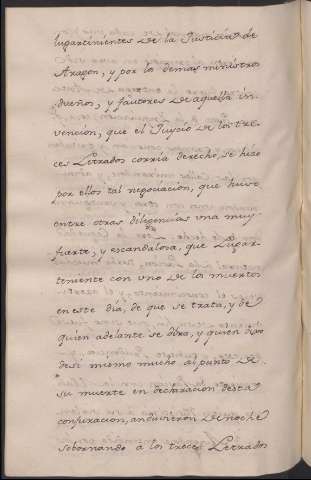 lupartinientes de la Justicia de
Aragon, y por los demas ministros
dueños, y fautores de aquella in-
vencion, que el Juyzio de los tre-
ces Letrados corria derecho, se hizo
por ellos tal negociacion, que huvo
entre otras diligencias vna muy
fuerte, y escandalosa, que Lugar-
teniente con vno de los muertos
en este dia, de que se trata, y de
quien adelante se dira, y quien dixo
desi mismo mucho al punto de
su muerte en declaracion desta
conjuracion, anduvieron de noche
sobornando a los treces Letrados